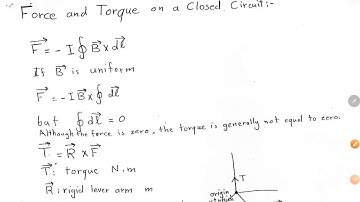 Force and Torque on a Closed Circuit:-
F = - I ∮ B x dl
If B is uniform
F = - I B x ∮ dl
but ∮ dl = 0
Although the force is zero, the torque is generally not equal to zero.
T = R x F
T: torque N.m
R: rigid lever arm m
T
origin